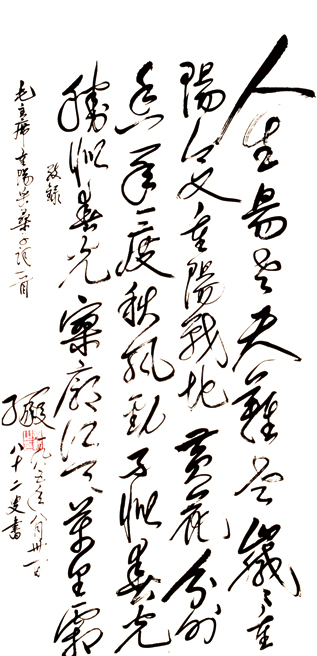 人生易老天難老歲〻重
陽今又重陽戰地黃花分外
香一年一度秋風勁不似春光
勝似春光寥廓江天萬里霜
敬錄
毛主席重陽采桑子詞一首
孫毅
一九八五年月卅一日
八十二叟書